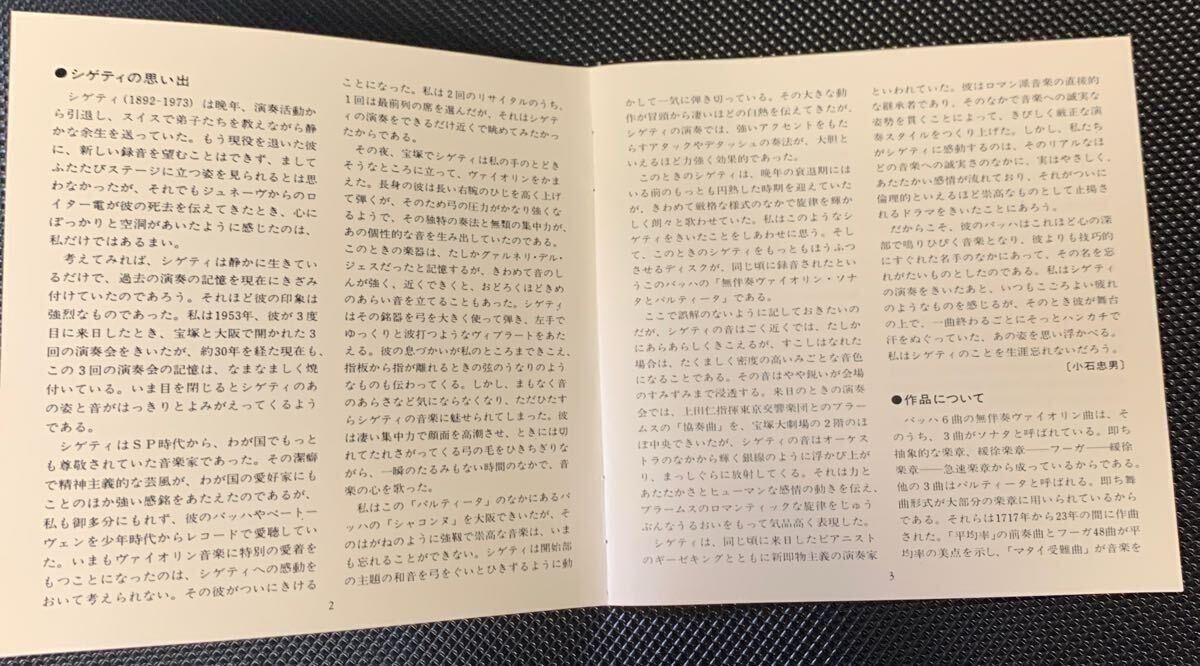 ●シゲティの思い出
シゲティ(1892-1973)は晩年、演奏活動か
ら引退し、スイスで弟子たちを教えながら静
かな余生を送っていた。もう現役を退いた彼
に、新しい録音を望むことはできず、まして
ふたたびステージに立つ姿を見られるとは思
わなかったが、それでもジュネーヴからのロ
イター電が彼の死去を伝えてきたとき、心に
ぽっかりと空洞があいたように感じたのは、
私だけではあるまい。
考えてみれば、シゲティは静かに生きてい
るだけで、過去の演奏の記憶を現在にきざみ
付けていたのであろう。それほど彼の印象は
強烈なものであった。私は1953年、彼が3度
目に来日したとき、宝塚と大阪で開かれた3
回の演奏会をきいたが、約30年を経た現在も、
この3回の演奏会の記憶は、なまなましく焼
付いている。いま目を閉じるとシゲティのあ
の姿と音がはっきりとよみがえってくるよう
である。
シゲティはSP時代から、わが国でもっと
も尊敬されていた音楽家であった。その潔癖
で精神主義的な芸風が、わが国の愛好家にも
ことのほか強い感銘をあたえたのであるが、
私も御多分にもれず、彼のバッハやベートー
ヴェンを少年時代からレコードで愛聴してい
た。いまもヴァイオリン音楽に特別の愛着を
もつことになったのは、シゲティへの感動を
おいて考えられない。その彼がついにきける
2
ことになった。私は2回のリサイタルのうち、
1回は最前列の席を選んだが、それはシゲテ
ィの演奏をできるだけ近くで眺めてみたかっ
たからである。
その夜、宝塚でシゲティは私の手のとどき
そうなところに立って、ヴァイオリンをかま
えた。長身の彼は長い右腕のひじを高く上げ
て弾くが、そのため弓の圧力がかなり強くな
るようで、その独特の奏法と無類の集中力が、
あの個性的な音を生み出していたのである。
このときの楽器は、たしかグァルネリ・デル・
ジェスだったと記憶するが、きわめて音のし
んが強く、近くできくと、おどろくほどきめ
のあらい音を立てることもあった。シゲティ
はその銘器を弓を大きく使って弾き、左手で
ゆっくりと波打つようなヴィブラートをあた
える。彼の息づかいが私のところまできこえ、
指板から指が離れるときの弦のうなりのよう
なものも伝わってくる。しかし、まもなく音
のあらさなど気にならなくなり、ただひたす
らシゲティの音楽に魅せられてしまった。彼
は凄い集中力で顔面を高潮させ、ときには切
れてたれさがってくる弓の毛をひきちぎりな
がら、一瞬のたるみもない時間のなかで、音
楽の心を歌った。
私はこの「パルティータ」のなかにあるバ
ッハの「シャコンヌ」を大阪できいたが、そ
のはがねのように強靱で崇高な音楽は、いま
も忘れることができない。シゲティは開始部
の主題の和音を弓をぐいとひきずるように動
かして一気に弾き切っている。その大きな動
作が冒頭から凄いほどの白熱を伝えてきたが、
シゲティの演奏では、強いアクセントをもた
らすアタックやデタッシュの奏法が、大胆と
いえるほど力強く効果的であった。
このときのシゲティは、晩年の衰退期には
いる前のもっとも円熟した時期を迎えていた
が、きわめて厳格な様式のなかで旋律を輝か
しく朗々と歌わせていた。私はこのようなシ
ゲティをきいたことをしあわせに思う。そし
て、このときのシゲティをもっともほうふつ
させるディスクが、同じ頃に録音されたとい
うこのバッハの「無伴奏ヴァイオリン・ソナ
タとパルティータ」である。
ここで誤解のないように記しておきたいの
だが、シゲティの音はごく近くでは、たしか
にあらあらしくきこえるが、すこしはなれた
場合は、たくましく密度の高いみごとな音色
になることである。その音はやや鋭いが会場
のすみずみまで浸透する。来日のときの演奏
会では、上田仁指揮東京交響楽団とのブラー
ムスの「協奏曲」を、宝塚大劇場の2階のほ
ぼ中央できいたが、シゲティの音はオーケス
トラのなかから輝く銀線のように浮かび上が
り、まっしぐらに放射してくる。それは力と
あたたかさとヒューマンな感情の動きを伝え、
ブラームスのロマンティックな旋律をじゅう
ぶんなうるおいをもって気品高く表現した。
シゲティは、同じ頃に来日したピアニスト
のギーゼキングとともに新即物主義の演奏家
3
といわれていた。彼はロマン派音楽の直接的
な継承者であり、そのなかで音楽への誠実な
姿勢を貫くことによって、きびしく厳正な演
奏スタイルをつくり上げた。しかし、私たち
がシゲティに感動するのは、そのリアルなほ
どの音楽への誠実さのなかに、実はやさしく、
あたたかい感情が流れており、それがついに
倫理的といえるほど崇高なものとして止揚さ
れるドラマをきいたことにあろう。
だからこそ、彼のバッハはこれほど心の深
部で鳴りひびく音楽となり、彼よりも技巧的
にすぐれた名手のなかにあって、その名を忘
れがたいものとしたのである。私はシゲティ
の演奏をきいたあと、いつもここちよい疲れ
のようなものを感じるが、そのとき彼が舞台
の上で、一曲終わるごとにそっとハンカチで
汗をぬぐっていた、あの姿を思い浮かべる。
私はシゲティのことを生涯忘れないだろう。
〔小石忠男〕
●作品について
バッハ6曲の無伴奏ヴァイオリン曲は、そ
のうち、3曲がソナタと呼ばれている。即ち
抽象的な楽章、緩徐楽章——フーガ——緩徐
楽章——急速楽章から成っているからである。
他の3曲はパルティータと呼ばれる。即ち舞
曲形式が大部分の楽章に用いられているから
である。それらは1717年から23年の間に作曲
された。「平均率」の前奏曲とフーガ48曲が平
均率の美点を示し、「マタイ受難曲」が音楽を